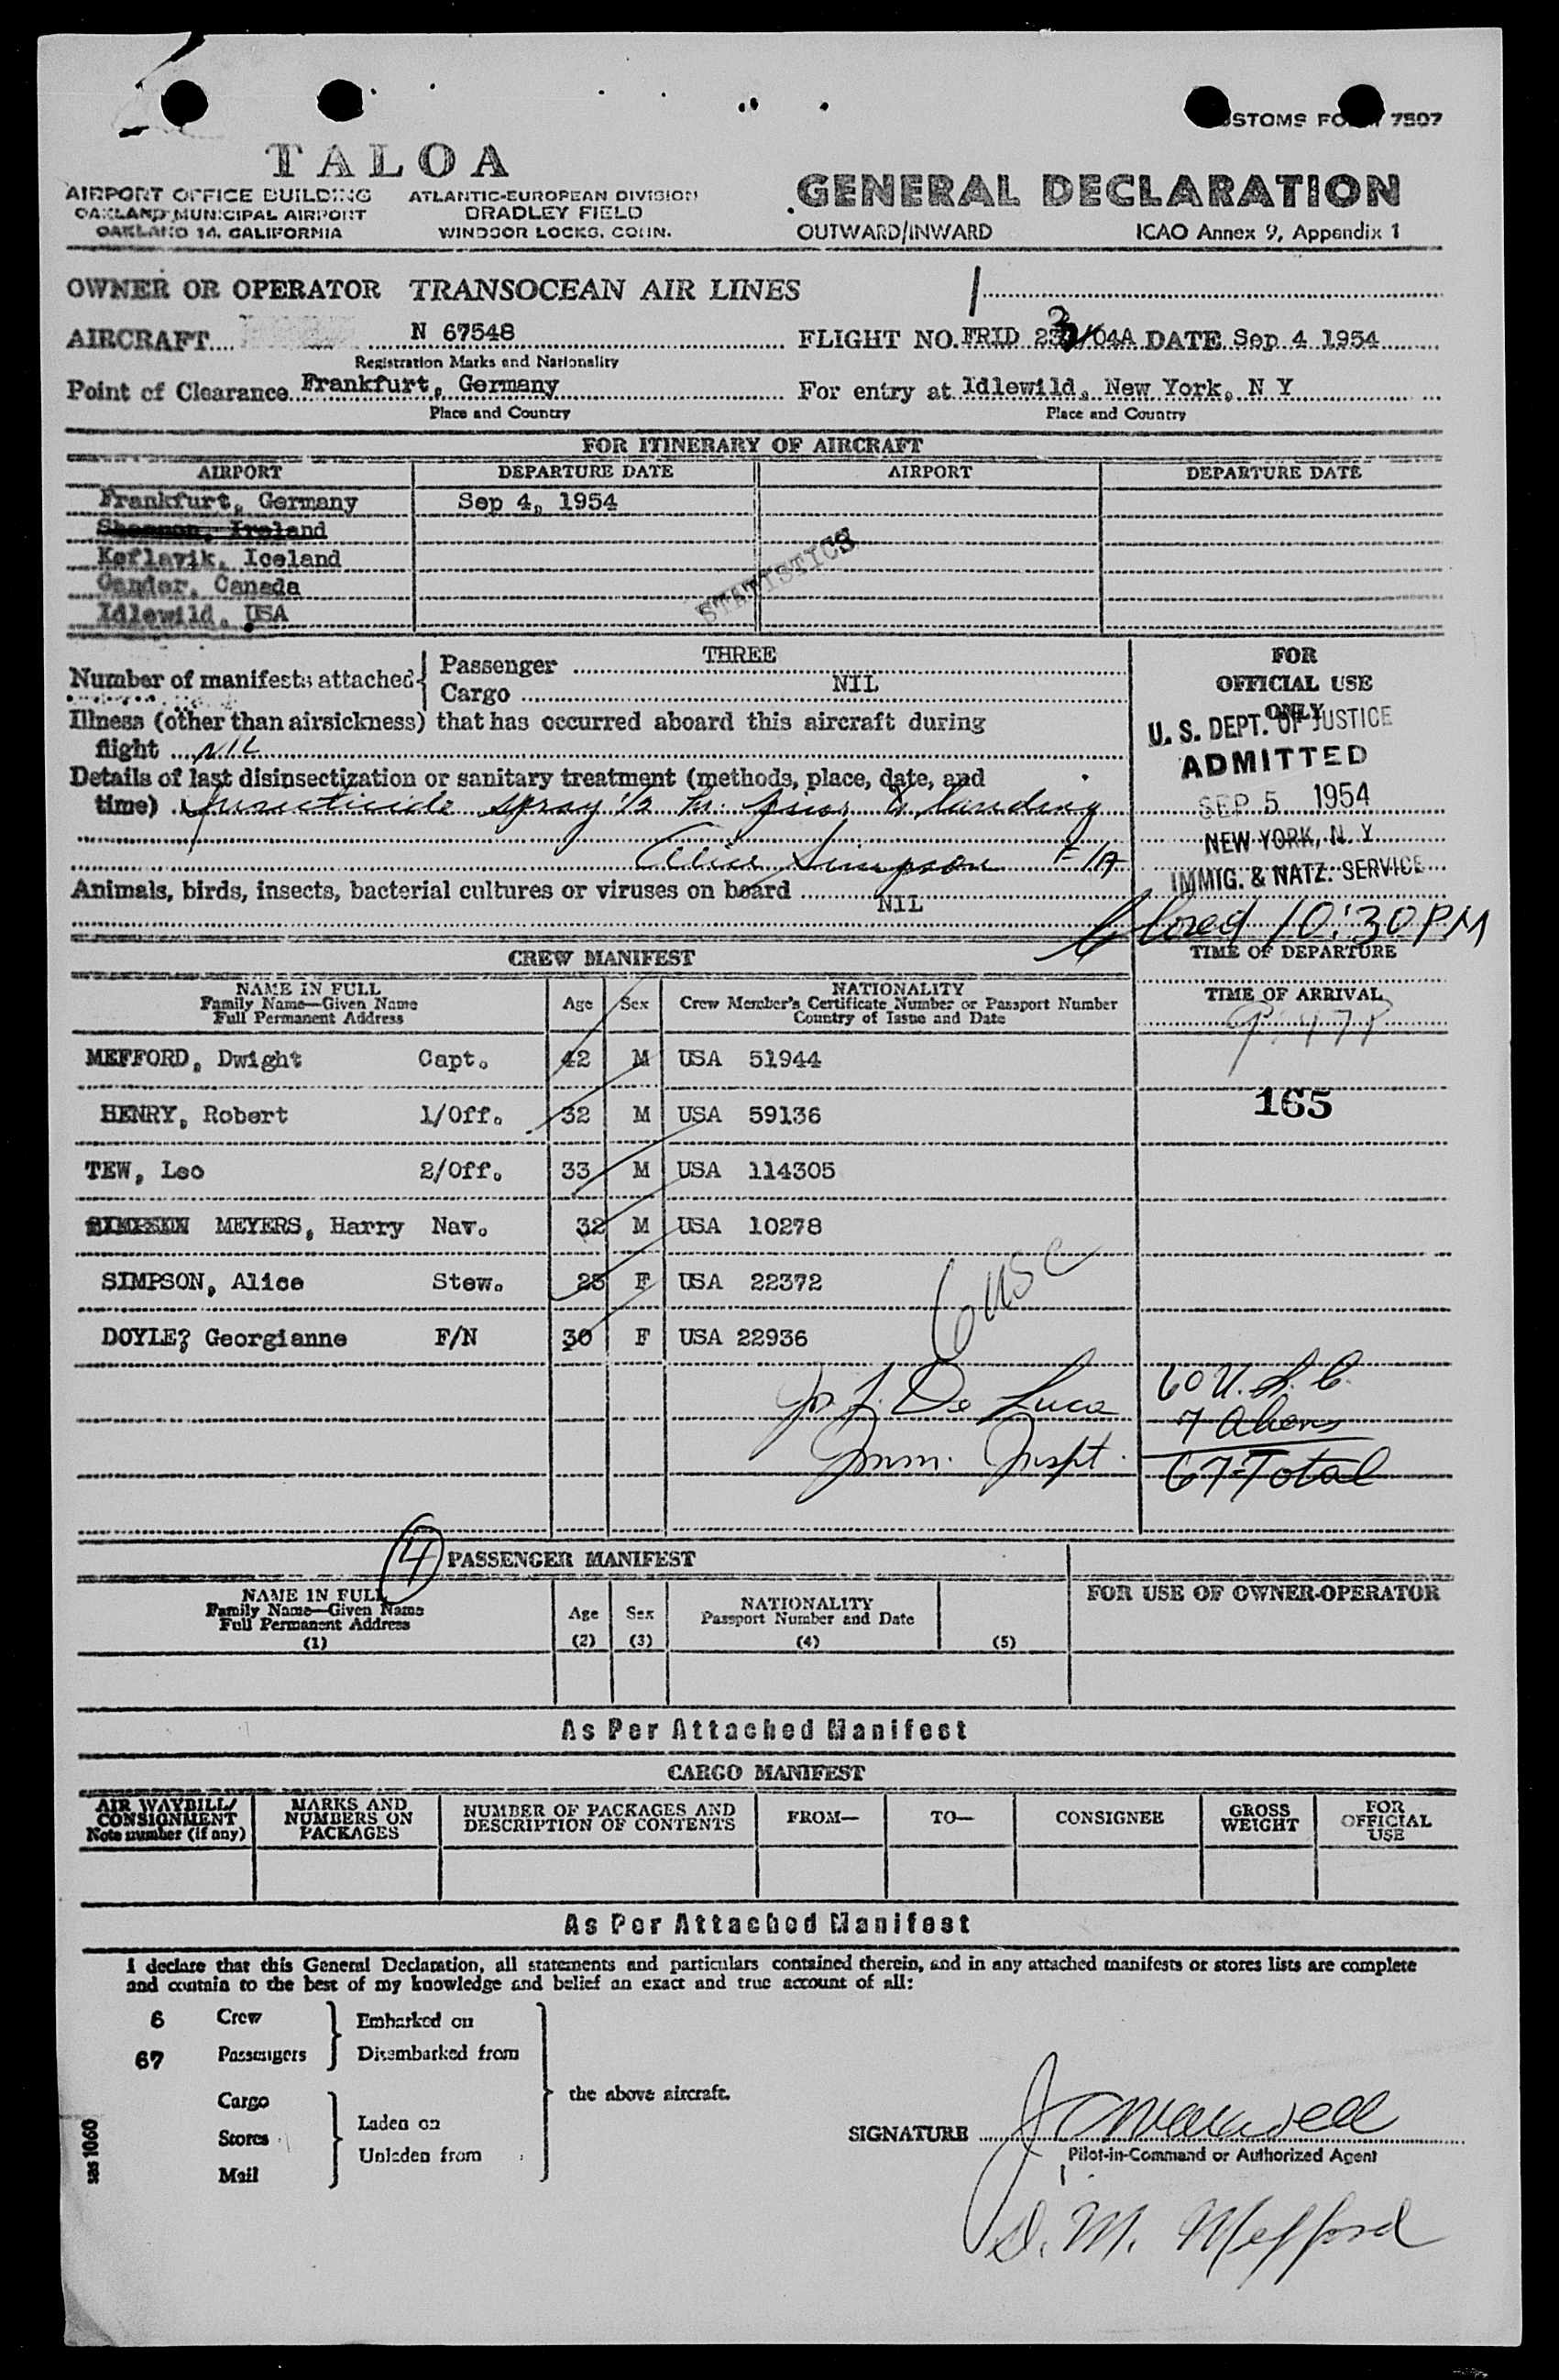 CUSTOMS FORM 7507
TALOA
AIRPORT OFFICE BUILDING
OAKLAND MUNICIPAL AIRPORT
OAKLAND 14, CALIFORNIA
ATLANTIC-EUROPEAN DIVISION
BRADLEY FIELD
WINDSOR LOCKS, CONN.
GENERAL DECLARATION
OUTWARD/INWARD ICAO Annex 9, Appendix 1
OWNER OR OPERATOR TRANSOCEAN AIR LINES
AIRCRAFT N 67548 FLIGHT NO. FRID 04A DATE Sep 4 1954
Registration Marks and Nationality
Point of Clearance Frankfurt, Germany For entry at Idlewild, New York, N Y
Place and Country Place and Country
FOR ITINERARY OF AIRCRAFT
AIRPORT DEPARTURE DATE AIRPORT DEPARTURE DATE
Frankfurt, Germany Sep 4, 1954
Shannon, Ireland
Keflavik, Iceland
Gander, Canada
Idlewild, USA
STATISTICS
Number of manifests attached
Passenger THREE
Cargo NIL
Illness (other than airsickness) that has occurred aboard this aircraft during
flight NIL
Details of last disinsectization or sanitary treatment (methods, place, date, and
time) Insecticide spray 1/2 hr. prior to landing
Alice Simpson F/A
Animals, birds, insects, bacterial cultures or viruses on board NIL
FOR
OFFICIAL USE
ONLY
U. S. DEPT. OF JUSTICE
ADMITTED
SEP 5 1954
NEW YORK, N. Y.
IMMIG. & NATZ. SERVICE
Closed 10:30 PM
TIME OF DEPARTURE
TIME OF ARRIVAL
165
CREW MANIFEST
NAME IN FULL
Family Name—Given Name
Full Permanent Address
Age Sex
NATIONALITY
Crew Member's Certificate Number or Passport Number
Country of Issue and Date
MEFFORD, Dwight Capt. 42 M USA 51944
HENRY, Robert 1/Off. 32 M USA 59136
TEW, Leo 2/Off. 33 M USA 114305
SIMPSON MEYERS, Harry Nav. 32 M USA 10278
SIMPSON, Alice Stew. 23 F USA 22372
DOYLE? Georgianne F/N 30 F USA 22936
6 USC
De Luca
Imm. Inspt.
60 U.S.C.
7 Aliens
67 Total
4
PASSENGER MANIFEST
NAME IN FULL
Family Name—Given Name
Full Permanent Address
(1)
Age
(2)
Sex
(3)
NATIONALITY
Passport Number and Date
(4)
(5)
FOR USE OF OWNER-OPERATOR
As Per Attached Manifest
CARGO MANIFEST
AIR WAYBILL/
CONSIGNMENT
Note number (if any)
MARKS AND
NUMBERS ON
PACKAGES
NUMBER OF PACKAGES AND
DESCRIPTION OF CONTENTS
FROM—
TO—
CONSIGNEE
GROSS
WEIGHT
FOR
OFFICIAL
USE
As Per Attached Manifest
I declare that this General Declaration, all statements and particulars contained therein, and in any attached manifests or stores lists are complete
and contain to the best of my knowledge and belief an exact and true account of all:
6 Crew
67 Passengers
Embarked on
Disembarked from
Cargo
Stores
Mail
Laden on
Unladen from
the above aircraft.
sas 1060
SIGNATURE
Pilot-in-Command or Authorized Agent
D. M. Mefford